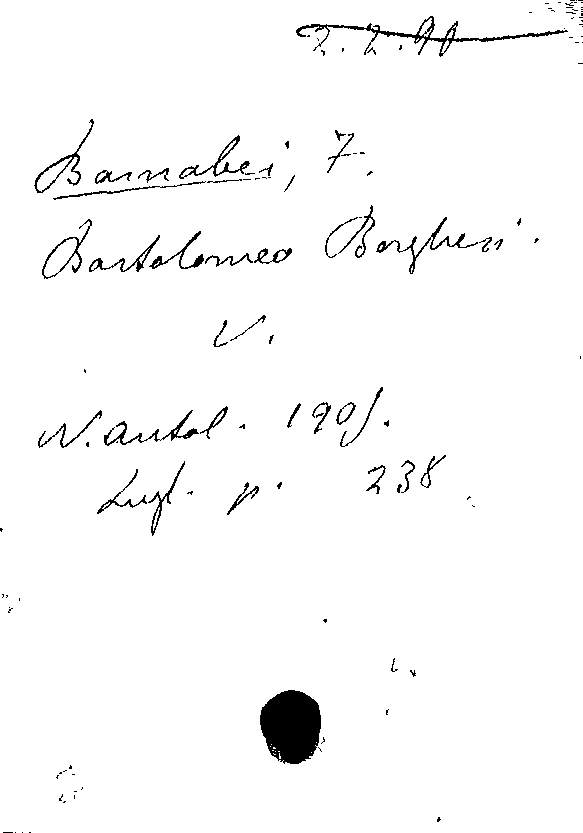 2.2.90
Barnabei, F.
Bartolomeo Borghesi.
V.
N. Antol. 1905.
Lugl. p. 238